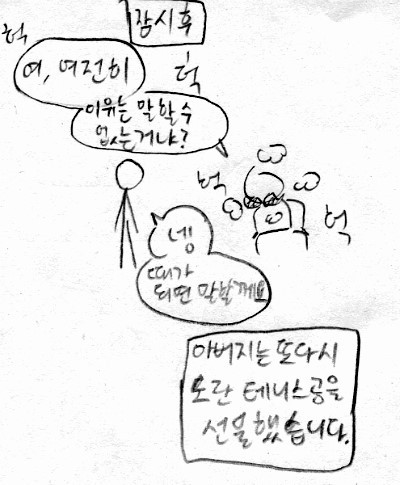 잠시후
헉
여, 여전히
헉
이유는 말할수
없는거냐?
헉
헉
넹
때가
되면 말할께요
아버지는 또다시
노란 테니스공을
선물했습니다.